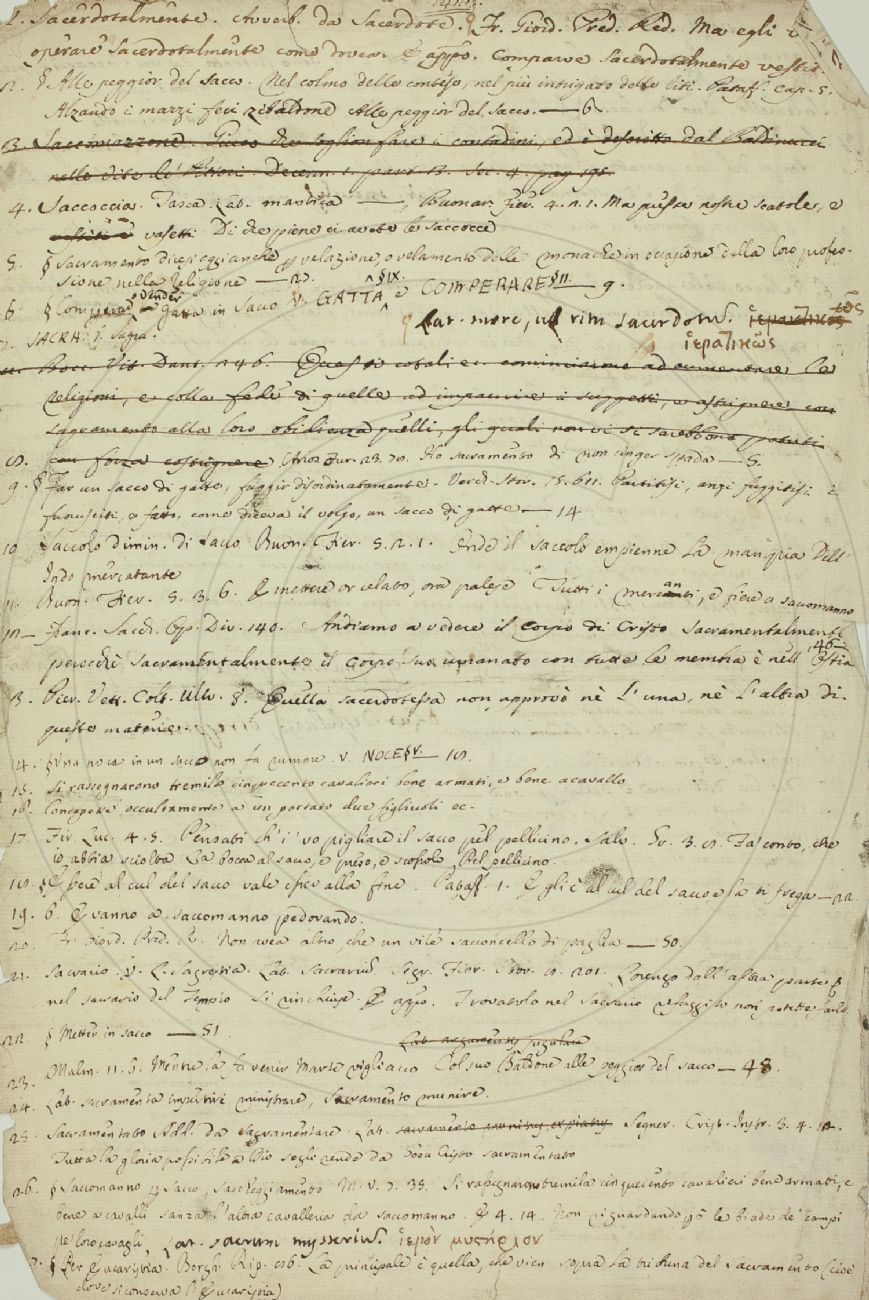 1. Sacerdotalmente. Avverb. da Sacerdote. Fr. Giord. Pred. Red. Ma egli
operare sacerdotalmente come dovea. E appo. Comparve sacerdotalmente vestito
2. § Alle peggior del sacco. Nel colmo delle contese, nel più intrigato delle liti. Pataff. Cap. 5.
Alzando i mazzi feci zibaldone Alle peggior del sacco. — 6
3. Saccomazzone. Giuoco che soglion fare i contadini, ed è descritto dal Baldinucci
nelle vite de' Pittori Decenn. 1. part. 3. Sec. 4. pag.
4. Saccoccia. Tasca Lat. mantica —, Buonar. Fier. 4. 2. 1. Ma queste nostre scatole, e
vasetti Di che piene ci avete le saccocce
5. § Sacramento dicesi oggi anche velazione, o velamento delle monache in occasione della loro profes-
sione nella Religione — 27.
6. § Comperare, vender gatta in sacco V. GATTA §IX. e COMPERARE §II. — 9.
9 Lat. more, vel ritu sacerdotum. ἱερατικος τῶς
ἱερατικῶς
7. SACRA. V. Sagra.
Bocc. Vit. Dant. 246. Questi cotali ec. cominciarono ad aumentare le
religioni, e colla fede di quelle ad impaurire i suggetti, e a strignere con
sagramento alla loro obbidienza quelli, gli quali non vi si sarebbono potuti
8. con forza costrignere Arios. Fur. 23. 78. Ho sacramento di non cinger spada — 5.
9. § Far un sacco di gatte, fuggir disordinatamente. Verch. Stor. 15. 611. Partitisi, anzi fuggitisi i
fuorusciti, e fatto, come diceva il volgo, un sacco di gatte — 14
10. Saccolo dimin. di Sacco Buon. Fier. 5. 2. 1. Onde il saccolo empienne La mancia Dell'
Indo mercatante
11. Buon. Fier. 5. 3. 6. E mettere or celato, ora palese Tutti i mercanti, e fiere a saccomanno
12 — Franc. Sacch. Op. Div. 140. Andiamo a vedere il Corpo di Cristo sacramentalmente
perocchè sacramentalmente il Corpo suo umanato con tutte le membra è nell' Ostia 46 —
13. Pier. Vett. Colt. Uliv. 8. Quella sacerdotessa non approvò nè l' una, nè l' altra di
queste materie.
14. § Una noce in un sacco non fa rumore. V. NOCE §V. — 18.
15. Si rassegnarono tremila cinquecento cavalieri bene armati, e bene a cavallo
16. Concepere occultamente a un portato due figliuoli ec.
17. Fir. Luc. 4. 5. Pensati ch' i' vo pigliare il sacco pel pellicino. Salv. Gr. 3. 2. Fa' conto, che
io abbia sciolta La bocca al sacco, e preso, e scossolo Pel pellicino.
18. § Essere al cul del sacco vale esser alla fine. Pataff. 1. Egli è al cul del sacco e la ti frega — 22
19. 6. E vanno a saccomanno pedovando.
20. Fr. Giord. Pred. R. Non avea altro, che un vile sacconcello di paglia — 50.
21. Sacrario. V. L. Sagrestia. Lat. Sacrarium. Segr. Fior. Stor. 8. 201. Lorenzo dall' altra parte
nel sacrario del Tempio si rinchiuse. E appo. Trovatolo nel Sacrario rifuggito non potette
22. § Metter in sacco — 51.
23. Malm. 11. 5. Mentre la fa venir Marte vigliacco Col suo Baldone alle peggior del sacco — 48.
24. Lat. sacramenta impertire ministrare, Sacramento munire.
25. Sacramentato Add. da sagramentare. Lat. sacramento Segner. Crist. Instr. 3. 4. 12.
Tutta la gloria possibile a Dio segli rende da Gesù Cristo sacramentato
26. § Saccomanno per Sacco, Saccheggiamento M. V. 7. 35. Si rassegnarono tremila cinquecento cavalieri bene armati, e
bene a cavalli sanza l' altra cavalleria da saccomanno. E 4. 14. Non riguardando per le biade de' campi
pe' loro cavagli, Lat. sacrum mysterium. ἱερὸν μυςήριον
27. § Per Eucaristia. Borgh. Rip. La principale è quella, che vien sopra la tribuna del sacramento (cioè
dove si conserva l' Eucaristia)